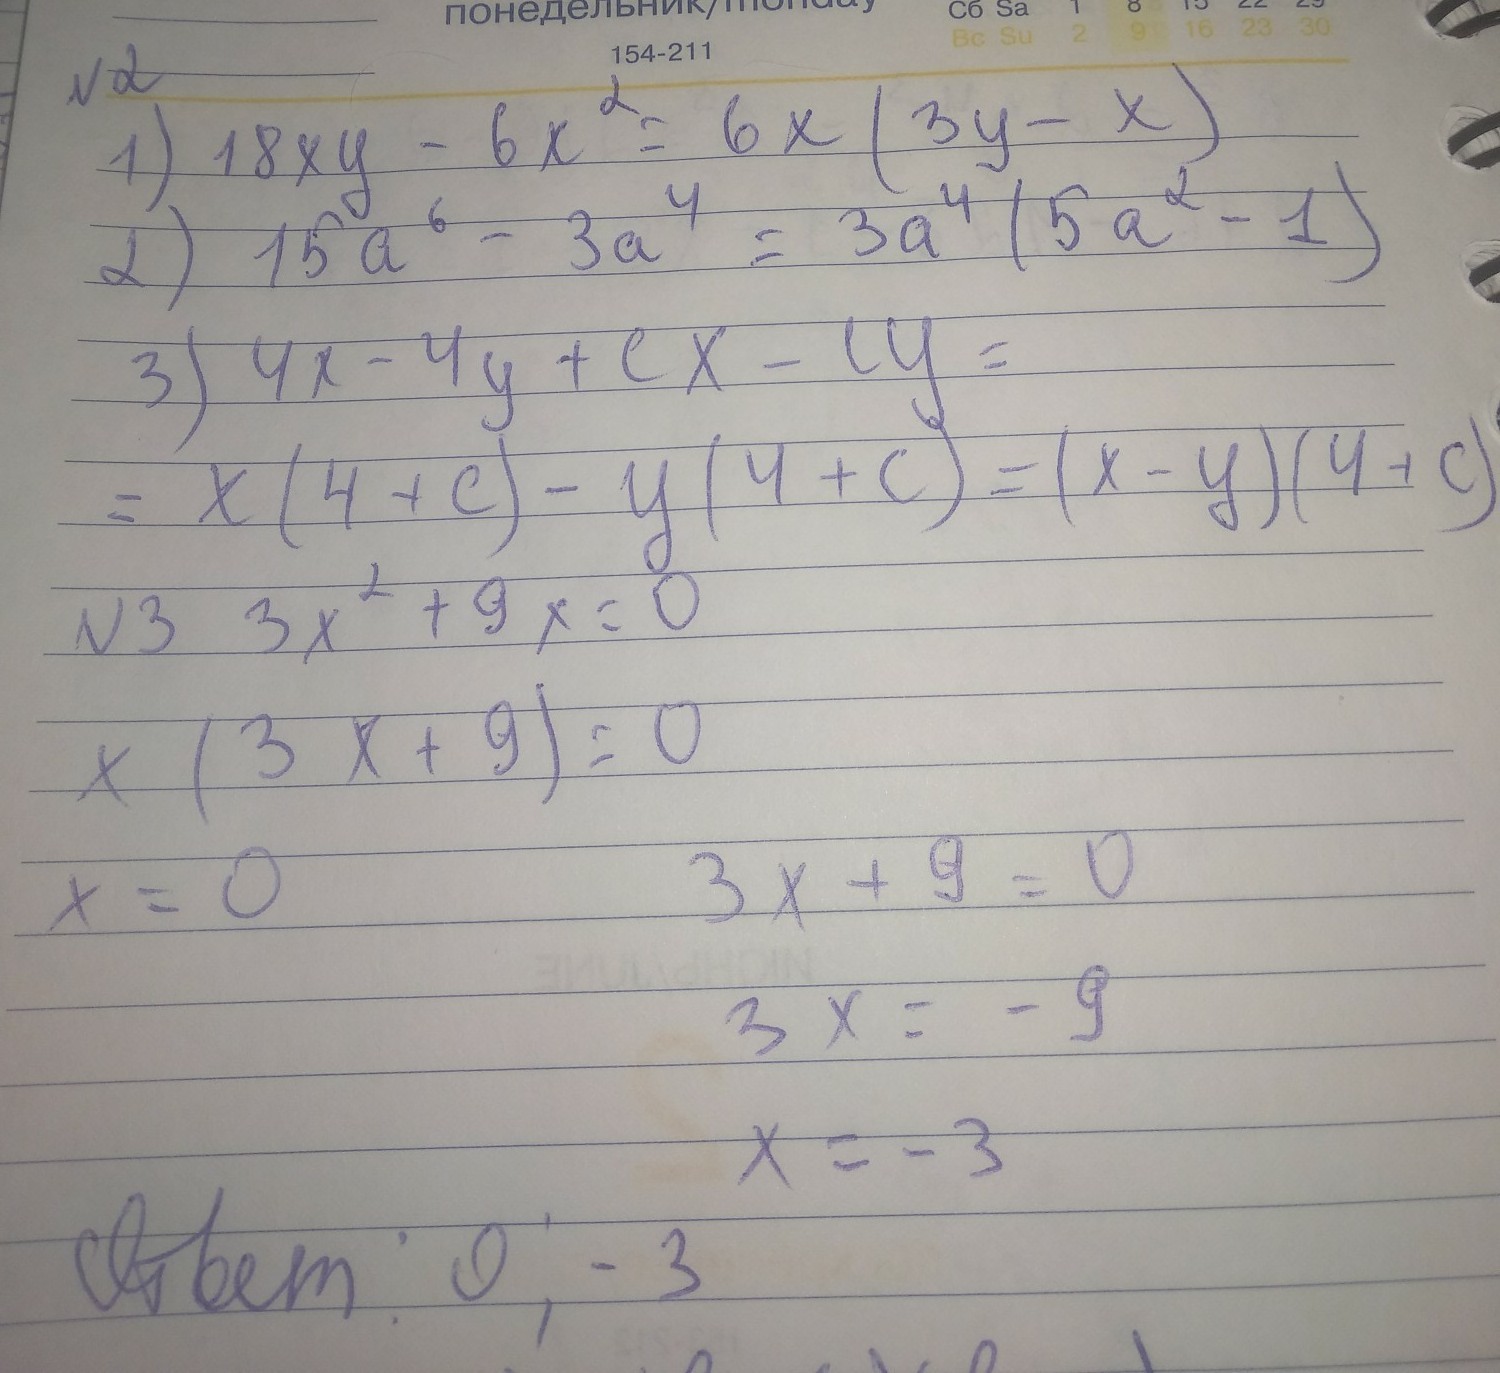 понедельник/monday
154-211
Сб Sa 1 8 15 22 29
Вс Su 2 9 16 23 30
№2
1) 18xy - 6x² = 6x (3y - x)
2) 15a⁶ - 3a⁴ = 3a⁴ (5a² - 1)
3) 4x - 4y + cx - cy =
= x (4 + c) - y (4 + c) = (x - y)(4 + c)
№3 3x² + 9x = 0
x (3x + 9) = 0
x = 0 3x + 9 = 0
3x = -9
x = -3
Ответ: 0; -3